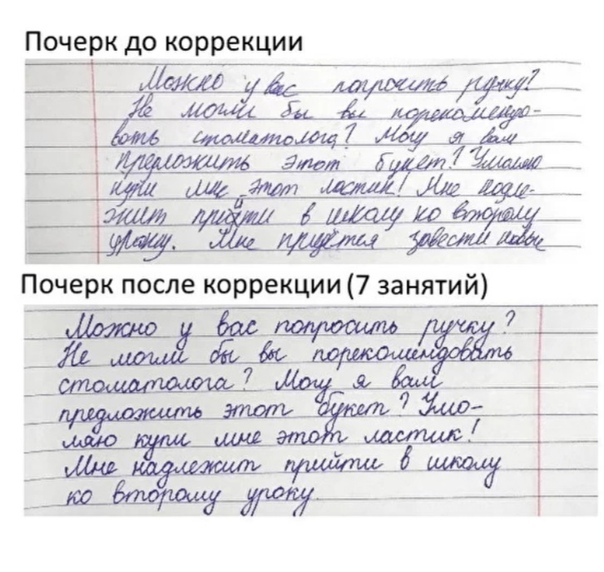 Почерк до коррекции
Можно у вас попросить ручку?
Не могли бы вы порекомендо-
вать стоматолога? Могу я вам
предложить этот букет? Умоляю
купи мне этот ластик! Мне надле-
жит прийти в школу ко второму
уроку. Мне придётся завести новые
Почерк после коррекции (7 занятий)
Можно у вас попросить ручку?
Не могли бы вы порекомендовать
стоматолога? Могу я вам
предложить этот букет? Умо-
ляю купи мне этот ластик!
Мне надлежит прийти в школу
ко второму уроку.